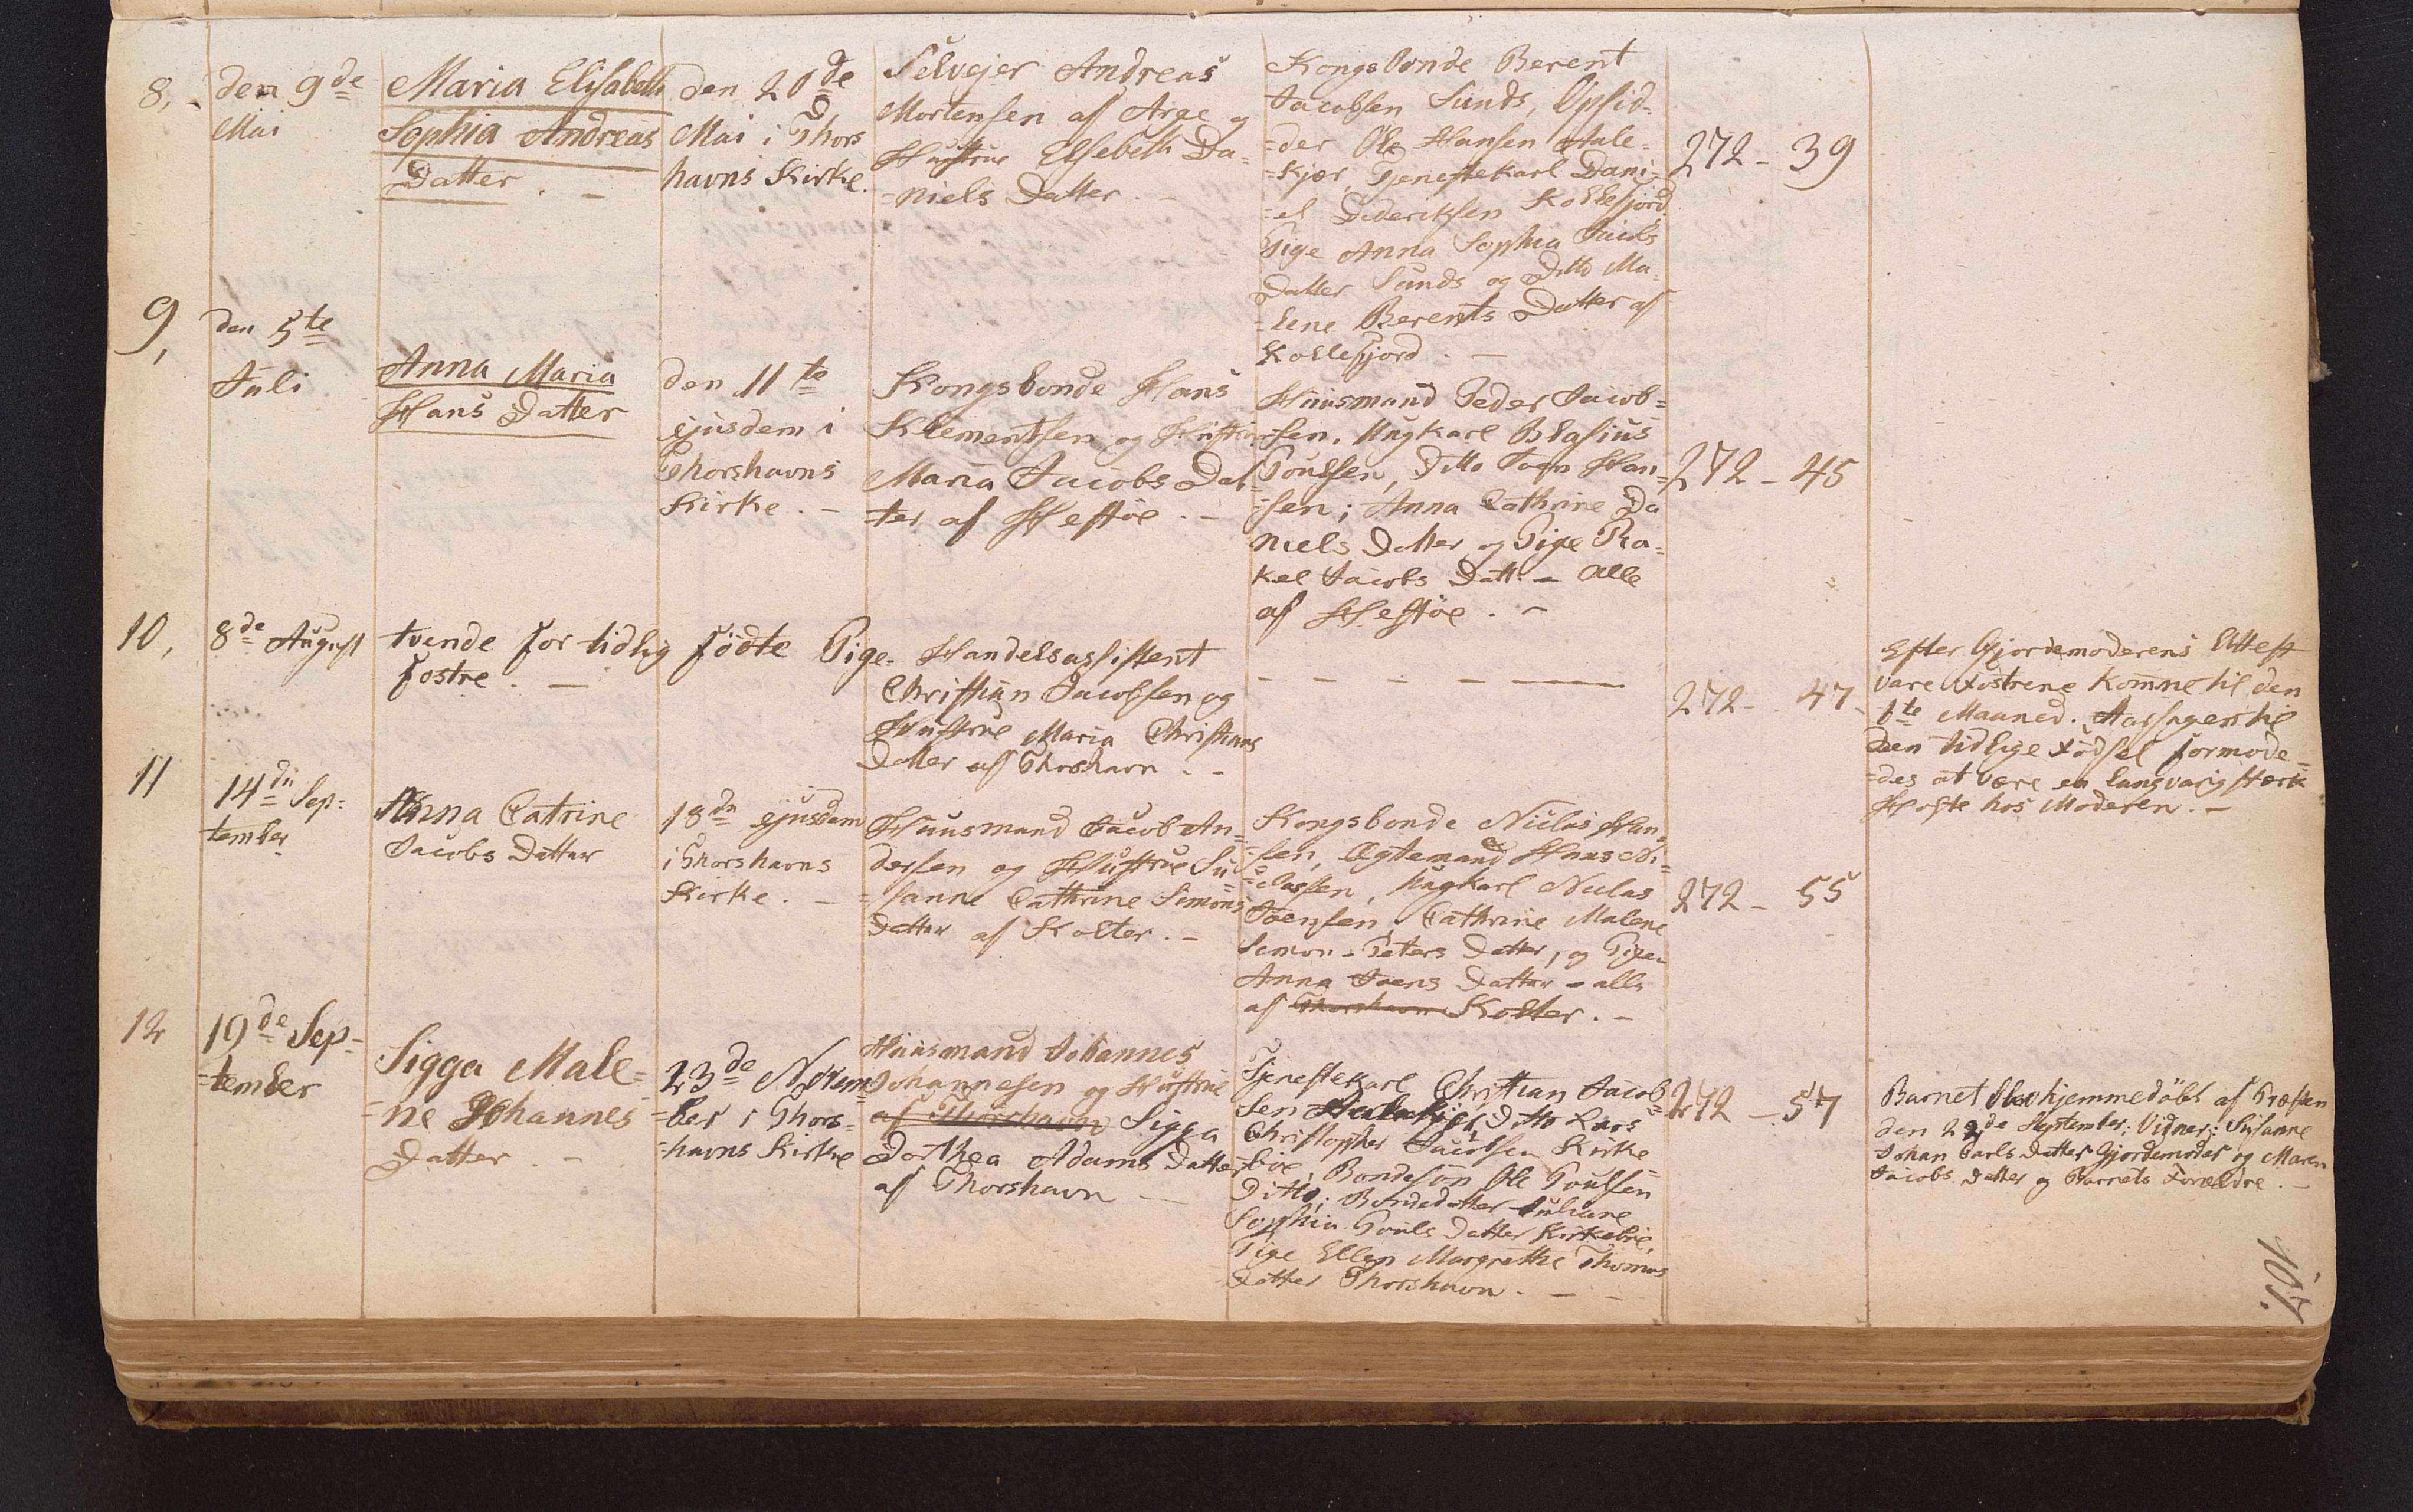 8,
den 9de
Mai
Maria Elisabeth
Sophia Andreas
Datter. -
den 20de
Mai i Thors
havns Kirke.
Selvejer Andreas
Mortensen af Arge og
Hustrue Elsebeth Da=
=niels Datter. -
Kongsbonde Berent
Jacobsen Sunds, Opsid=
=der Ole Hansen Hale=
=kjær, Tjenestekarl Dani=
=el Dideriksen Kollefjord
Pige Anna Sophia Jacobs
Datter Sunds og Ditto Ma=
=lene Berents Datter af
Kollefjord. -
272 - 39
9,
den 5te
Juli
Anna Maria
Hans Datter
den 11te
ejusdem i
Thorshavns
Kirke. -
Kongsbonde Hans
Klementsen og Hustrue
Maria Jacobs Dat=
=ter af Hestøe. -
Huusmand Peder Jacob=
=sen, Ungkarl Blasius
Poulsen, Ditto Joen Han=
=sen; Anna Cathrine Da
niels Datter og Pige Ra=
kel Jacobs Datt. - alle
af Hestøe. -
272 - 45
10,
8de August
tvende for tidlig fødte Pige-
fostre. -
Handelsassistent
Christian Jacobsen og
Hustrue Maria Christians
Datter af Thorshavn. -
- - - - -
272 - 47 -
Efter Gjordemoderens Attest
vare Fostrene komne til den
6te Maaned. Aarsagen til
den tidlige Fødsel formode=
=des at være en langvarig stærk
Hoste hos Moderen. -
11
14de Sep=
tember
Anna Catrine
Jacobs Datter
18de ejusdem
i Thorshavns
Kirke. -
Huusmand Jacob An=
dersen og Hustrue Su=
=sanne Cathrine Simons
Datter af Kolter. -
Kongsbonde Niclas Han=
=sen, Ægtemand Hans Ni=
=classen, Ungkarl Niclas
Joensen, Cathrine Malene
Simon-Peters Datter, og Pigen
Anna Joens Datter - alle
af Thorshavn Kolter. -
272 - 55
12
19de Sep=
=tember
Sigga Male=
=ne Johannes
Datter. -
23de Novem
=ber i Thors=
=havns Kirke
Huusmand Johannes
Johannesen og Hustrue
af Thorshavn Sigga
Dorthea Adams Datter
af Thorshavn -
Tjenestekarl Christian Jacob=
sen Ditto Lars
Christopher Jacobsen Kirke=
=bøe, Bondesøn Ole Poulsen
Ditto; Bondedatter Juliane
Sophia Pouls Datter Kirkebøe,
Pige Ellen Margrethe Thomas
Datter Thorshavn. -
272 - 57
Barnet blev hjemmedøbt af Præsten
den 22de September; Vidner: Susanne
Johan Carls Datter Gjordemoder og Maren
Jacobs Datter og Barnets Forældre. -
107.